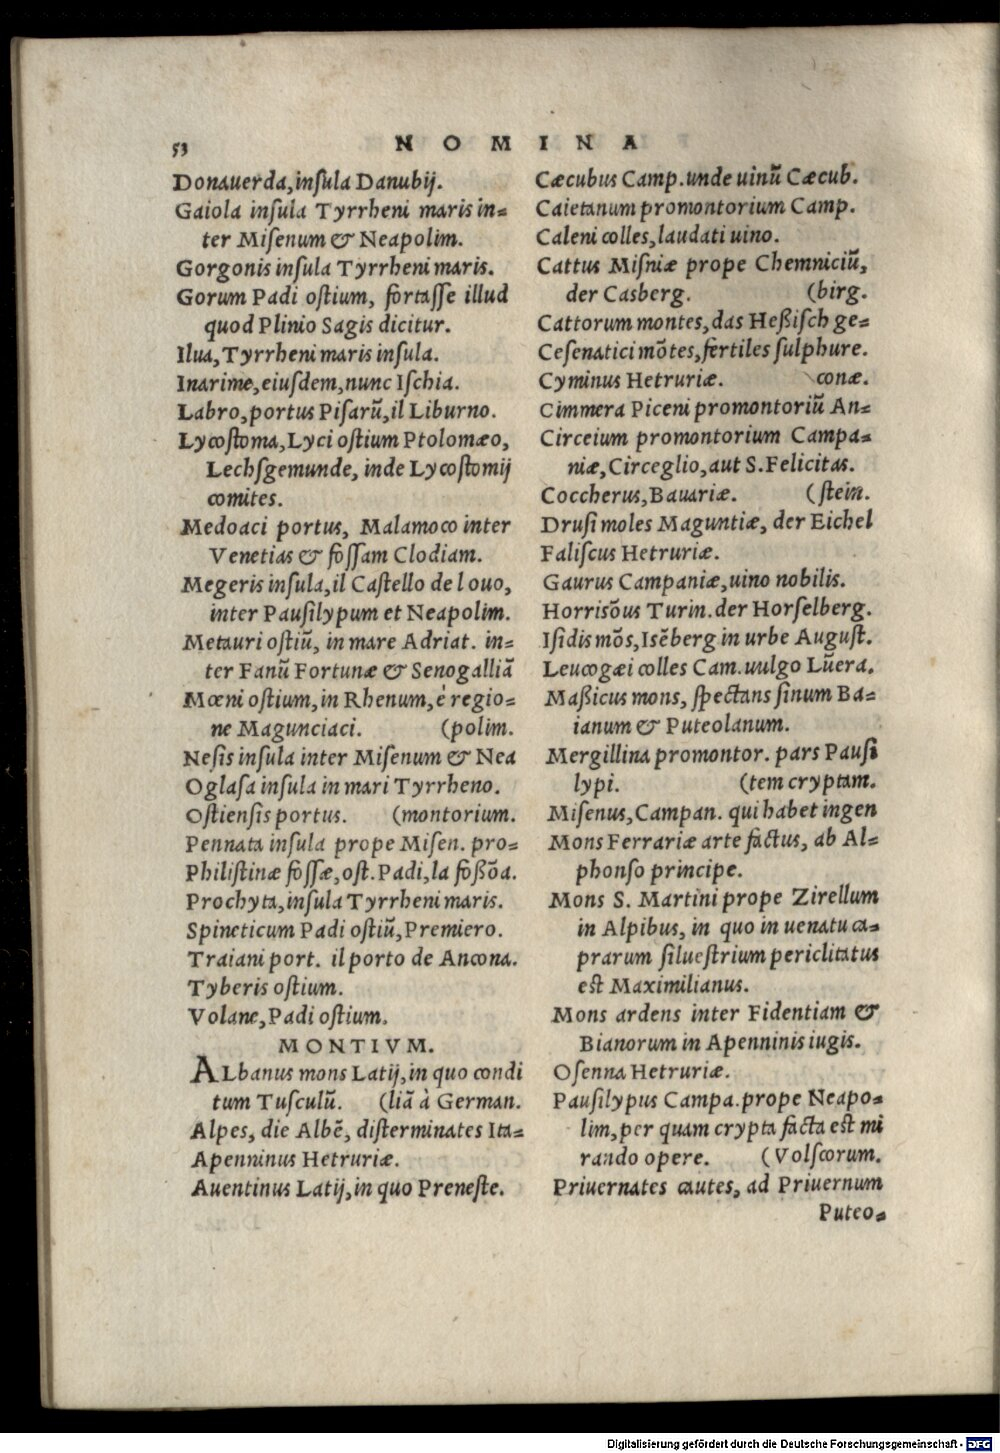 53
NOMINA
Donauerda, insula Danubij.
Gaiola insula Tyrrheni maris in=
ter Misenum & Neapolim.
Gorgonis insula Tyrrheni maris.
Gorum Padi ostium, fortasse illud
quod Plinio Sagis dicitur.
Ilua, Tyrrheni maris insula.
Inarime, eiusdem, nunc Ischia.
Labro, portus Pisarũ, il Liburno.
Lycostoma, Lyci ostium Ptolomæo,
Lechsgemunde, inde Lycostomij
comites.
Medoaci portus, Malamoco inter
Venetias & fossam Clodiam.
Megeris insula, il Castello de l ouo,
inter Pausilypum et Neapolim.
Metauri ostiũ, in mare Adriat. in=
ter Fanũ Fortunæ & Senogalliã
Mœni ostium, in Rhenum, è regio=
ne Magunciaci. (polim.
Nesis insula inter Misenum & Nea
Oglasa insula in mari Tyrrheno.
Ostiensis portus. (montorium.
Pennata insula prope Misen. pro=
Philistinæ fossæ, ost. Padi, la foßõa.
Prochyta, insula Tyrrheni maris.
Spineticum Padi ostiũ, Premiero.
Traiani port. il porto de Ancona.
Tyberis ostium.
Volane, Padi ostium.
MONTIVM.
ALbanus mons Latij, in quo condi
tum Tusculũ. (liã à German.
Alpes, die Albẽ, disterminates Ita=
Apenninus Hetruriæ.
Auentinus Latij, in quo Preneste.
Cæcubus Camp. unde uinũ Cæcub.
Caietanum promontorium Camp.
Caleni colles, laudati uino.
Cattus Misniæ prope Chemniciũ,
der Casberg. (birg.
Cattorum montes, das Heßisch ge=
Cesenatici mõtes, fertiles sulphure.
Cyminus Hetruriæ. conæ.
Cimmera Piceni promontoriũ An=
Circeium promontorium Campa=
niæ, Circeglio, aut S. Felicitas.
Coccherus, Bauariæ. (stein.
Drusi moles Maguntiæ, der Eichel
Faliscus Hetruriæ.
Gaurus Campaniæ, uino nobilis.
Horrisõus Turin. der Horselberg.
Isidis mõs, Isẽberg in urbe August.
Leucogæi colles Cam. uulgo Lũera.
Maßicus mons, spectans sinum Ba=
ianum & Puteolanum.
Mergillina promontor. pars Pausi
lypi. (tem cryptam.
Misenus, Campan. qui habet ingen
Mons Ferrariæ arte factus, ab Al=
phonso principe.
Mons S. Martini prope Zirellum
in Alpibus, in quo in uenatu ca=
prarum siluestrium periclitatus
est Maximilianus.
Mons ardens inter Fidentiam &
Bianorum in Apenninis iugis.
Osenna Hetruriæ.
Pausilypus Campa. prope Neapo=
lim, per quam crypta facta est mi
rando opere. (Volscorum.
Priuernates cautes, ad Priuernum
Puteo=
Digitalisierung gefördert durch die Deutsche Forschungsgemeinschaft - DFG